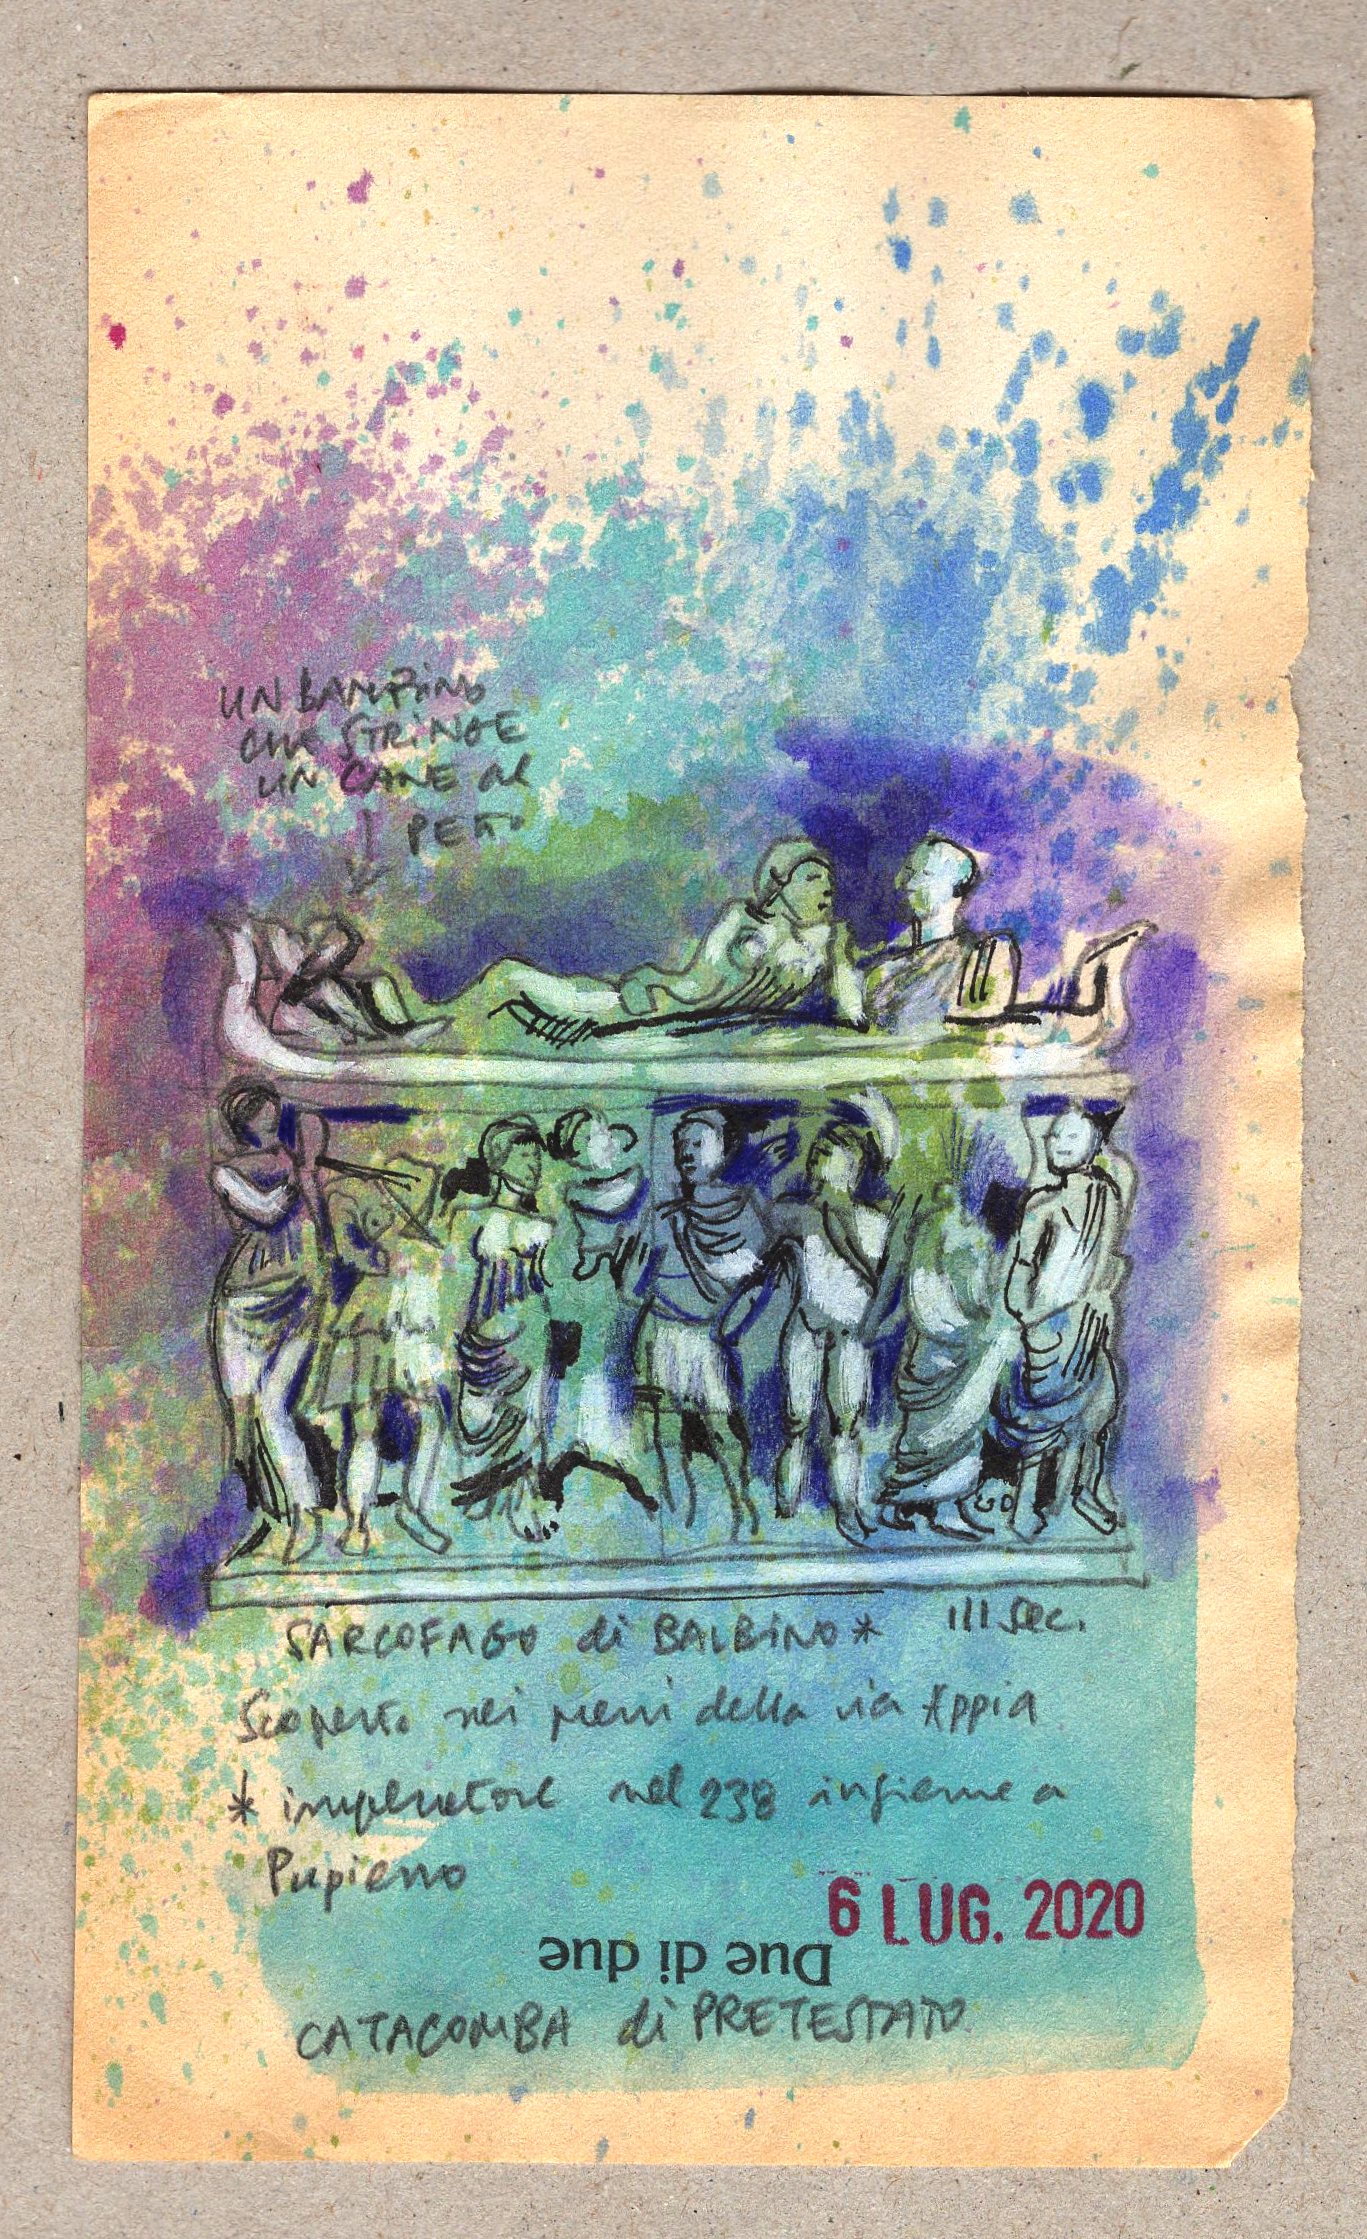 UN BAMBINO
CHE STRINGE
UN CANE al
PETTO
SARCOFAGO di BALBINO* III Sec.
Scoperto nei pressi della via Appia
* imperatore nel 238 insieme a
Pupieno
6 LUG. 2020
Due di due
CATACOMBA di PRETESTATO